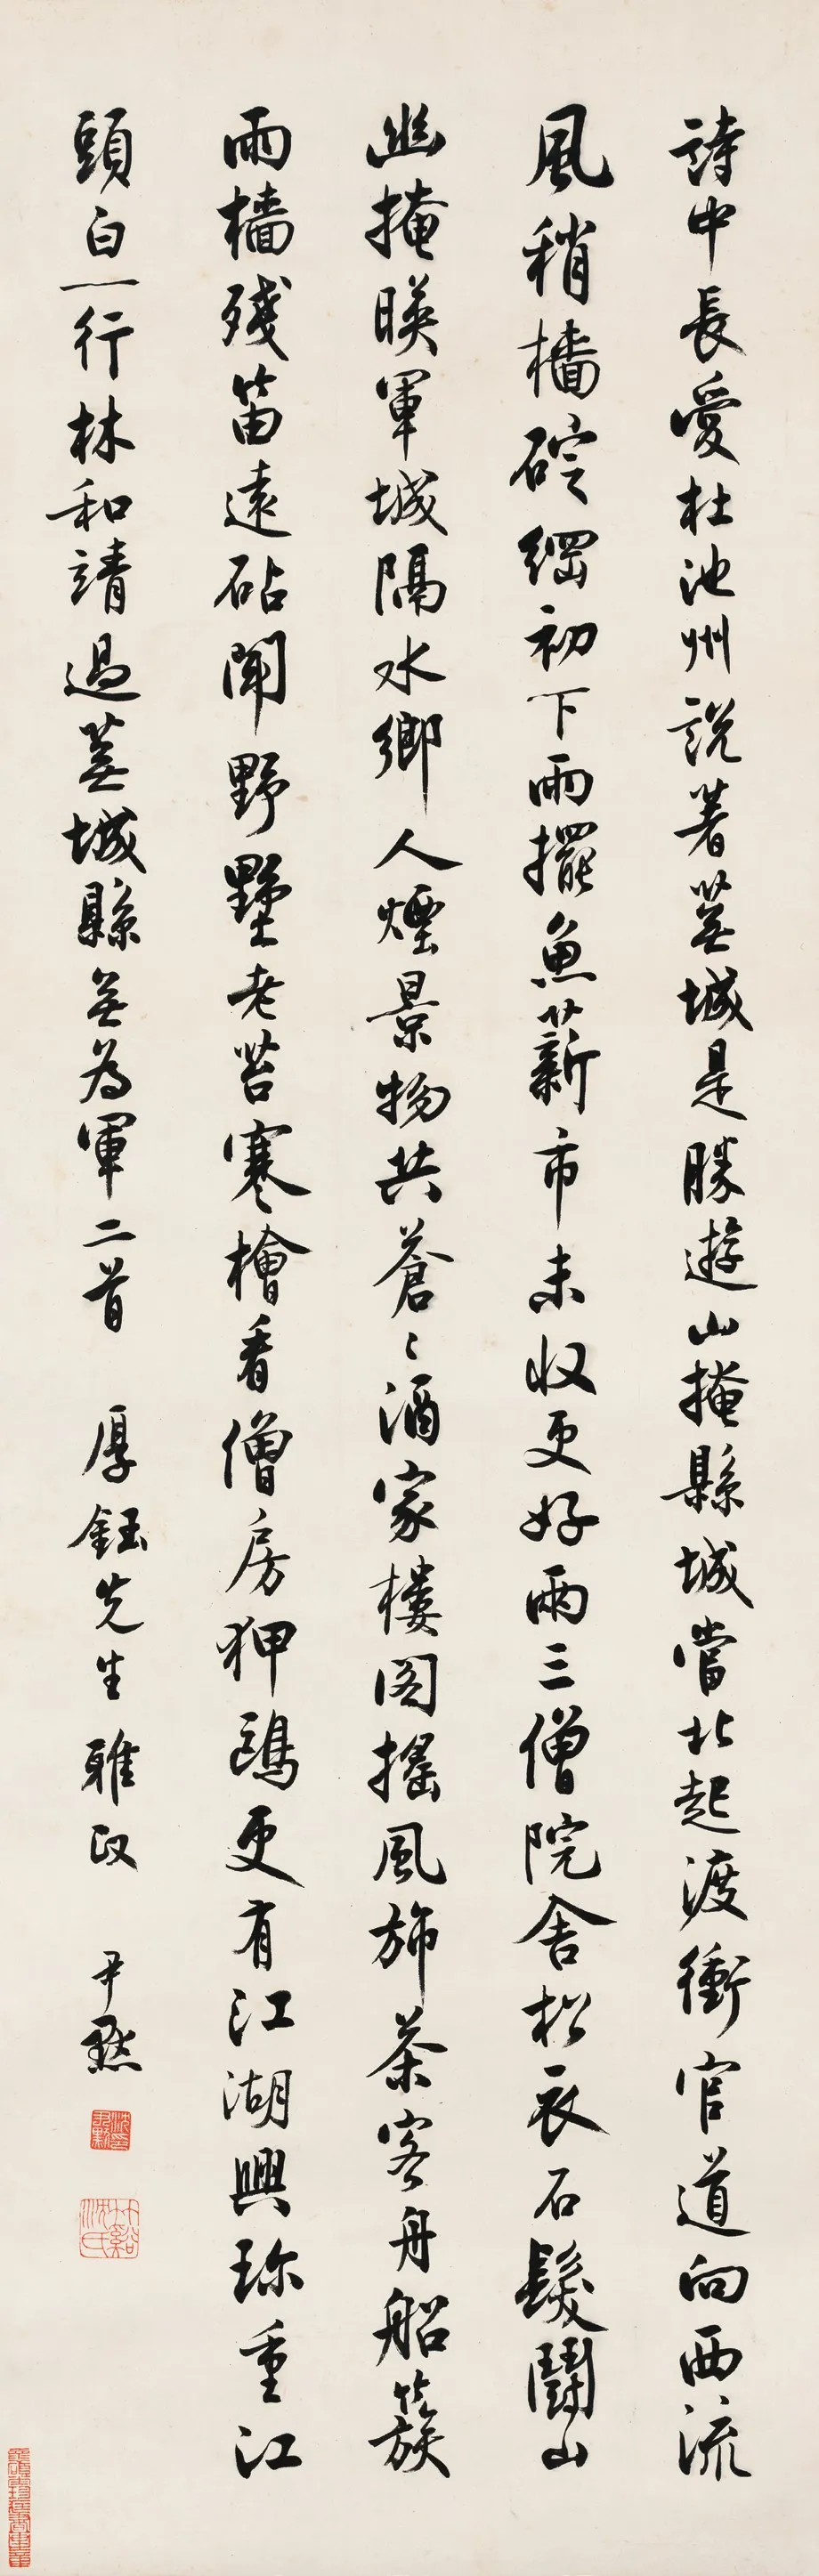 詩中長愛杜池州説著蕪城是勝遊山掩縣城當北起渡衝官道向西流
風稍檣碇綱初下雨擺魚薪市未收更好兩三僧院舍松衣石髮鬪山
幽掩暎軍城隔水鄉人煙景物共蒼〻酒家樓閣搖風斾茶客舟船簇
雨檣殘笛遠砧聞野墅老苔寒檜看僧房狎鷗更有江湖興珎重江
頭白一行林和靖過蕪城縣無為軍二首 厚鈺先生雅政 尹默
沈尹默
竹谿沈氏